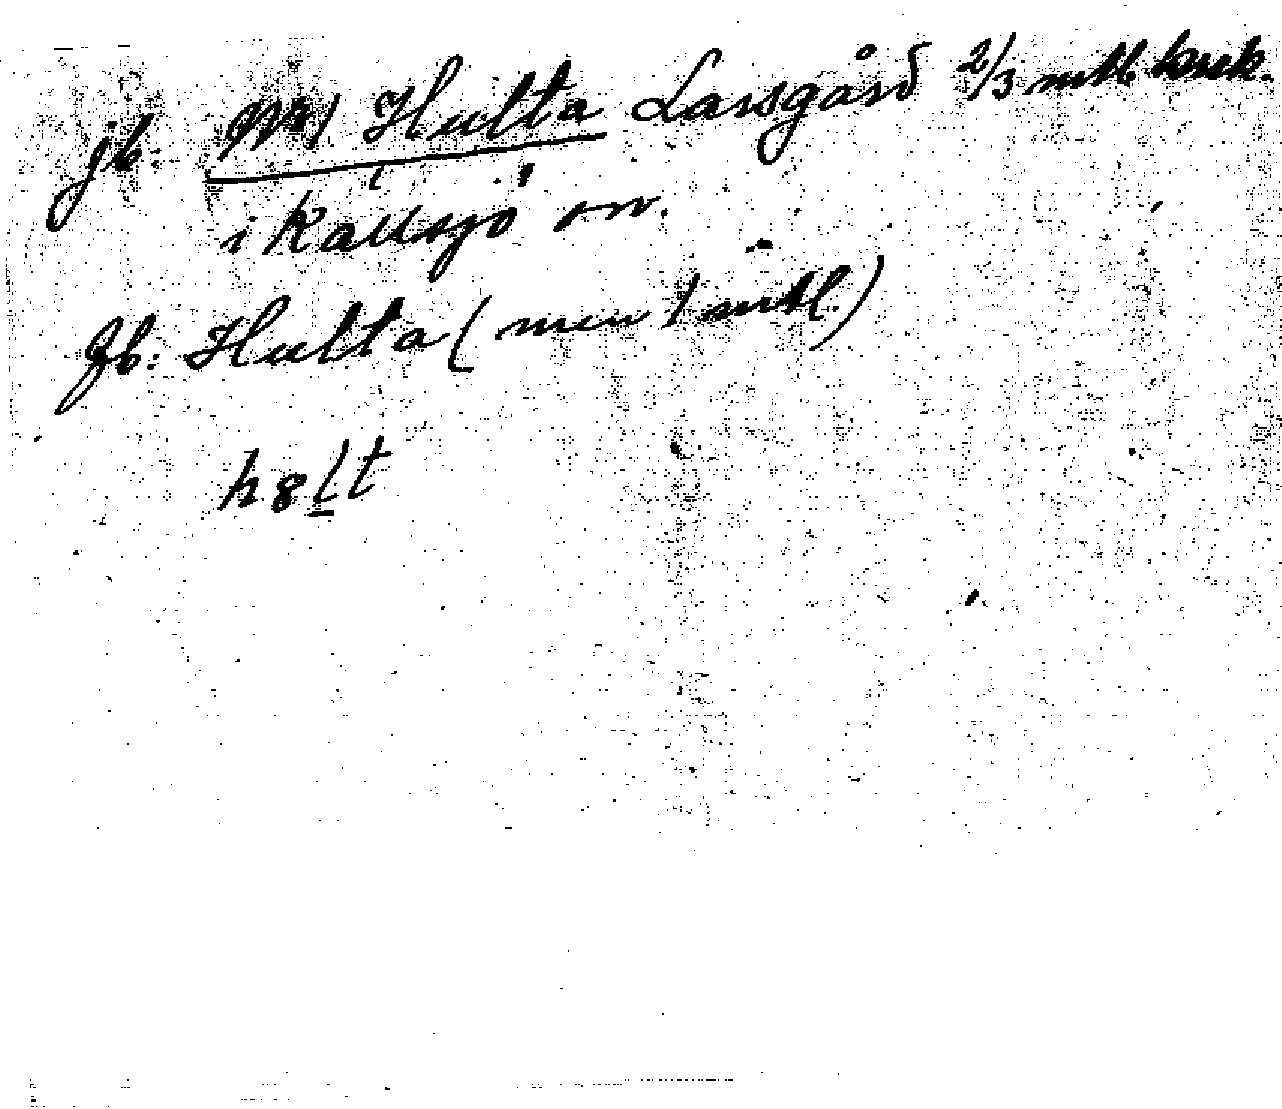 jb: № 1 Hulta Larsgård 2/3 mtl. krsk.
i Källsjö sn.
Gb: Hulta (men 1 mtl.)
h8lt